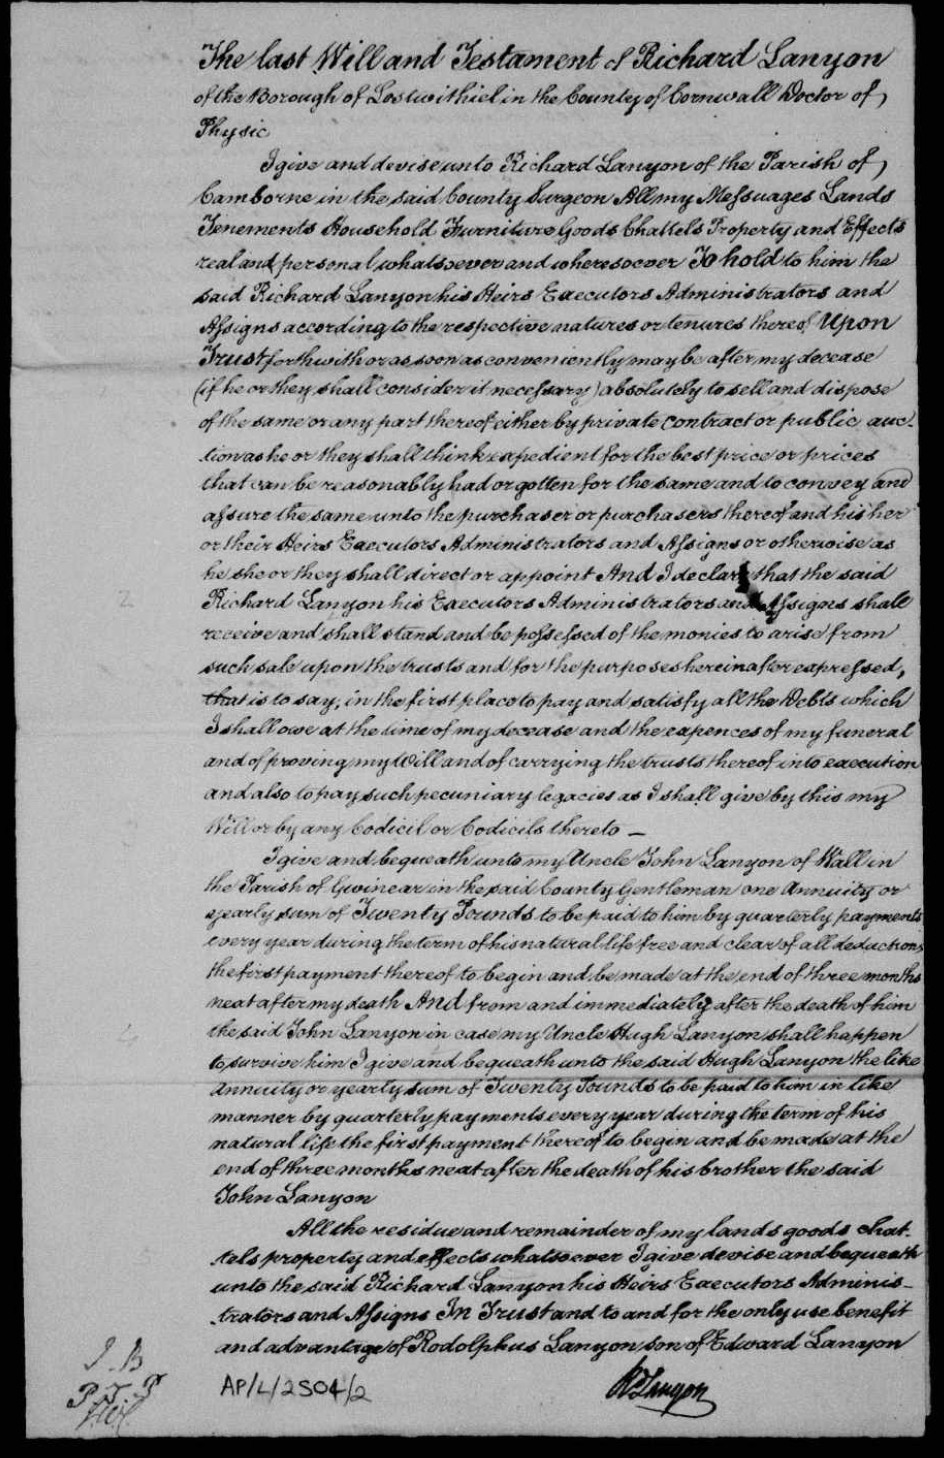 The last Will and Testament of Richard Lanyon
of the Borough of Lostwithiel in the County of Cornwall Doctor of
Physic
I give and devise unto Richard Lanyon of the Parish of
Camborne in the said County Surgeon All my Messuages Lands
Tenements Household Furniture Goods Chattels Property and Effects
real and personal whatsoever and wheresoever To hold to him the
said Richard Lanyon his Heirs Executors Administrators and
Assigns according to the respective natures or tenures thereof Upon
Trust forthwith or as soon as conveniently may be after my decease
(if he or they shall consider it necessary) absolutely to sell and dispose
of the same or any part thereof either by private contract or public auc-
tion as he or they shall think expedient for the best price or prices
that can be reasonably had or gotten for the same and to convey and
assure the same unto the purchaser or purchasers thereof and his her
or their Heirs Executors Administrators and Assigns or otherwise as
he she or they shall direct or appoint And I declare that the said
Richard Lanyon his Executors Administrators and Assigns shall
receive and shall stand and be possessed of the monies to arise from
such sale upon the trusts and for the purposes hereinafter expressed,
that is to say, in the first place to pay and satisfy all the Debts which
I shall owe at the time of my decease and the expences of my funeral
and of proving my Will and of carrying the trusts thereof into execution
and also to pay such pecuniary legacies as I shall give by this my
Will or by any Codicil or Codicils thereto —
I give and bequeath unto my Uncle John Lanyon of Wall in
the Parish of Gwinear in the said County Gentleman one Annuity or
yearly sum of Twenty Pounds to be paid to him by quarterly payments
every year during the term of his natural life free and clear of all deductions
the first payment thereof to begin and be made at the end of three months
next after my death And from and immediately after the death of him
the said John Lanyon in case my Uncle Hugh Lanyon shall happen
to survive him I give and bequeath unto the said Hugh Lanyon the like
Annuity or yearly sum of Twenty Pounds to be paid to him in like
manner by quarterly payments every year during the term of his
natural life the first payment thereof to begin and be made at the
end of three months next after the death of his brother the said
John Lanyon
All the residue and remainder of my lands goods chat-
tels property and effects whatsoever I give devise and bequeath
unto the said Richard Lanyon his Heirs Executors Adminis-
trators and Assigns In Trust and to and for the only use benefit
and advantage of Rodolphus Lanyon son of Edward Lanyon
R Lanyon
J. B
P. T. P
AP/L/2504/2
2